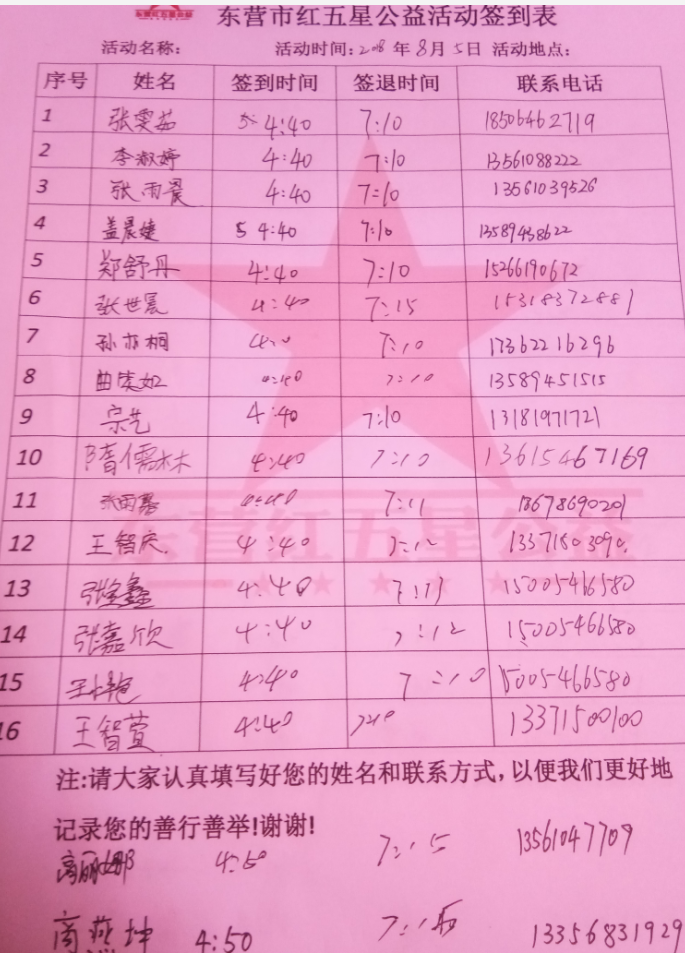 东营市红五星公益活动签到表
活动名称: 活动时间:2018年8月5日 活动地点:
序号 姓名 签到时间 签退时间 联系电话
1 张雯茹 4:40 7:10 18506462719
2 李淑婷 4:40 7:10 13561088222
3 张雨晨 4:40 7:10 13561039526
4 盖晨婕 4:40 7:10 13589438622
5 郑舒丹 4:40 7:10 15266190672
6 张世 4:40 7:15 15318372881
7 孙亦桐 7:10 17362216296
8 曲 4:40 7:10 13589451515
9 宗艺 4:40 7:10 13181971721
10 隋儒林 4:40 7:10 13615467169
11 张雨 4:40 7:11 18678690201
12 王智庆 4:40 7:12
13 张鑫 4:40 7:13 15005466580
14 张嘉欣 4:40 7:12 15005466580
15 王艳 4:40 7:10 15005466580
16 王智萱 4:40 7:10 13371500100
东营红五星公益
注:请大家认真填写好您的姓名和联系方式,以便我们更好地
记录您的善行善举!谢谢!
高丽娜 4:50 7:15 13561047709
商燕坤 4:50 7:15 13356831929